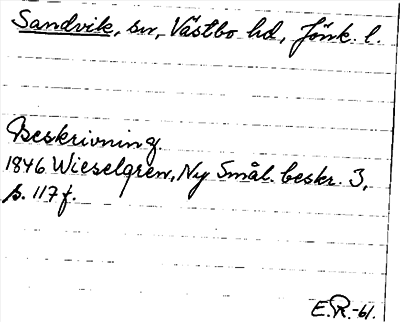 Sandvik, sn, Västbo hd, Jönk. l.
Beskrivning.
1846 Wieselgren, Ny Smål. beskr. 3,
s. 117 f.
E.R.-61.